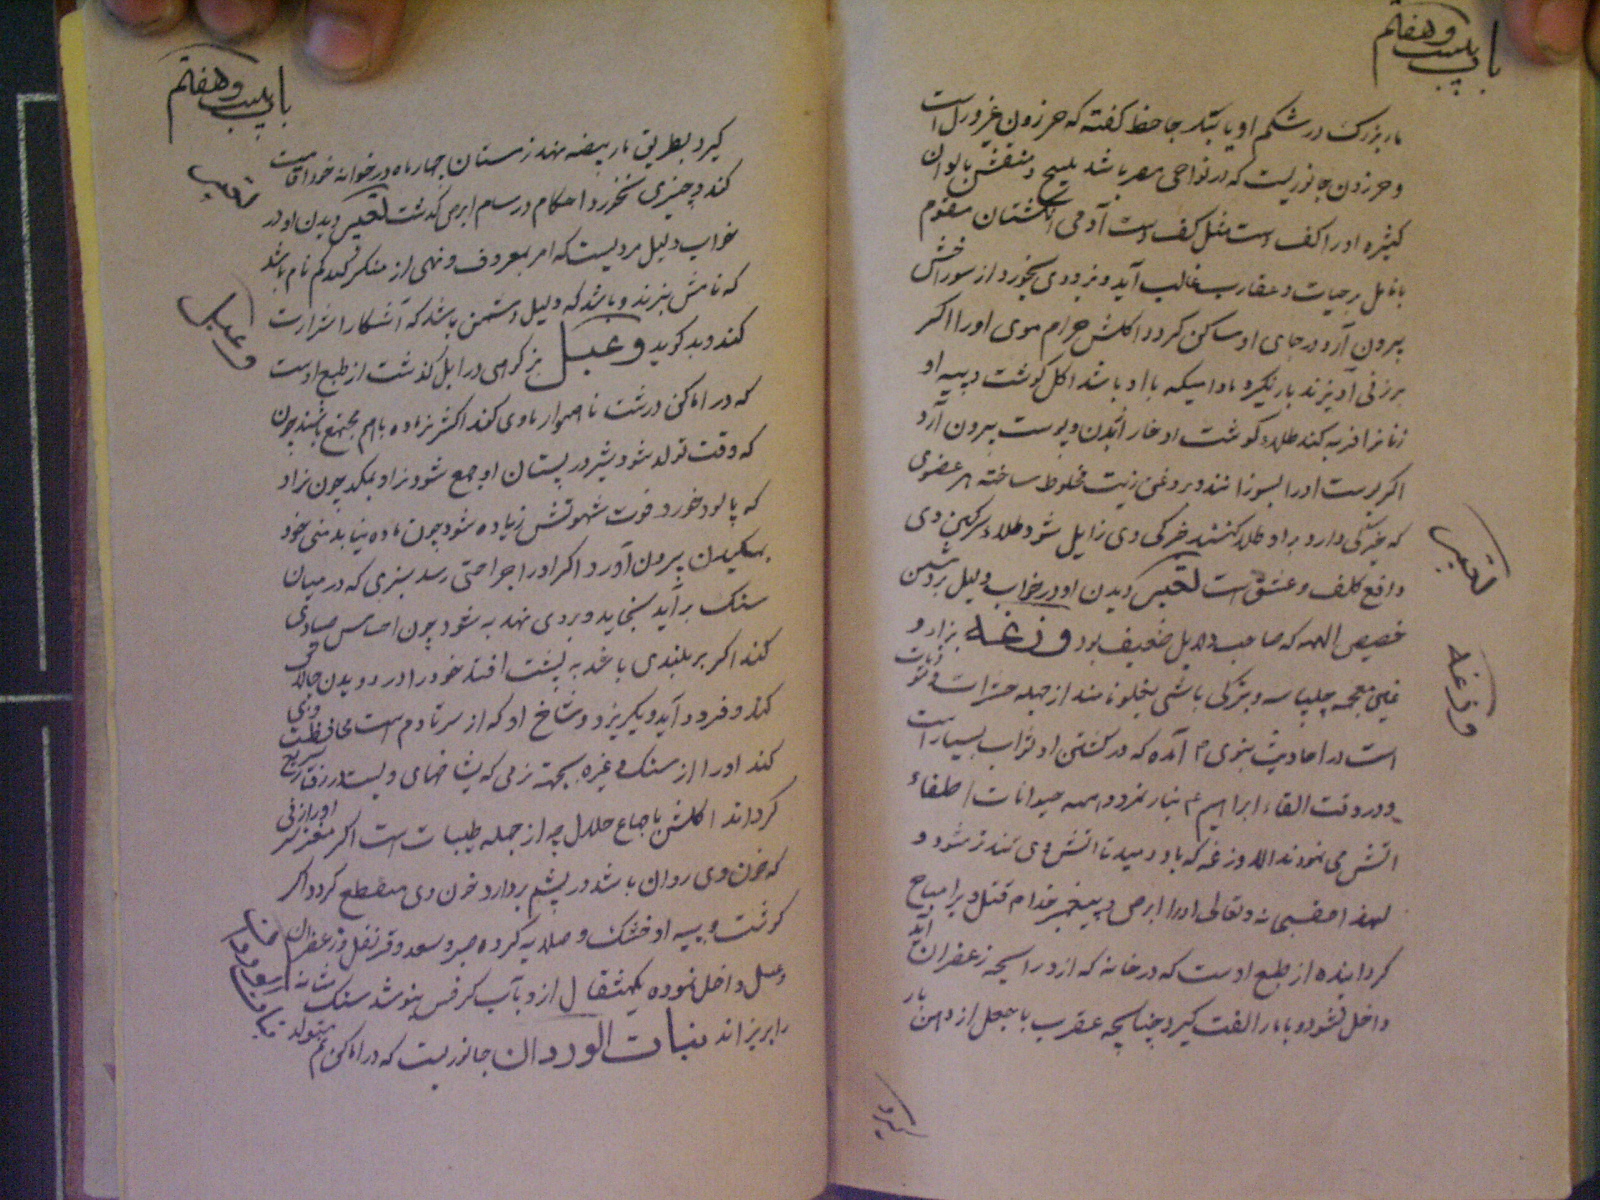 باب بیست و هفتم
مار بزرک در شکم او یابند جاحظ کفته که حرزون غیر ورل است
و حرزون جانوریست که در نواحی مصر باشد ملیح و منقش بالوان
کثیره او را کف دست مثل کف دست آدمی انکشتان مقوم
بانامل بر حیات و عقارب غالب آید و بزودی بخورد از سوراخش
بیرون آرد در جای او ساکن کردد اکلش حرام موی او را اکر
بر زنی آویزند بار نکیرد مادامیکه با او باشد اکل کوشت و پیه او
زنانرا فربه کند طلاء کوشت او خار از بدن و پوست بیرون آرد
اکر پوست او را بسوزانند و بروغن زیت مخلوط ساخته بر عضوی
که خدرکی دارد بر او طلا کنند خدرکی وی زایل شود طلاء سرکین وی
دافع کلف و نمش است تعبیر دیدن او در خواب دلیل بر دشمن
خسیس الهمه که صاحب دلایل ضعیف بود وزغه بزاء و
غین معجمه چلپاسه و بترکی باشی یخلو نامند از جمله حشرات و موذیات
است در احادیث نبوی ص آمده که در کشتن او ثواب بسیار است
و در وقت القاء ابراهیم ع بنار نمرود همه حیوانات اطفاء
اتش می نمودند الا وزغه که باد دمید تا اتش وی تندتر شود و
لهذا حقسبحانه و تعالی او را ابرص و پیغمبر خدا م قتل ویرا مباح
کردانیده از طبع اوست که در خانه که ازو رایحه زعفران آید
داخل نشود و با مار الفت کیرد چنانچه عقرب با جعل از دهن بار
تعبیر
وزغه
کیرد
باب بیست و هفتم
کیرد بطریق مار بیضه نهد زمستان چهار ماه در خوابه خود اقامت
کند و چیزی نخورد احکام در سام ابرص کذشت تعبیر دیدن او در
خواب دلیل مردیست که امر بمعروف و نهی از منکر کند کم نام باشد
که نامش نبرند و باشد که دلیل دشمن باشد که آشکارا شرارت
کند و بد کوید وعیل بز کوهی در ابل کذشت از طبع اوست
که در اماکن درشت ناهموار ماوی کند اکثر نر ماده باهم مجتمع باشند چون
که وقت تولد شود شیر در پستان او جمع شود نر او بمکد چون نر او
که پالود خورد قوت شهوتش زیاده شود چون ماده نیابد منی خود
بمکیدن بیرون آورد اکر او را جراحتی رسد سبزی که در میان
سنک برآید بخاید و بروی نهد به شود چون احساس صیادی
کند اکر بر بلندی باشد به پشت افتد خود را در دویدن چالاک
کند و فرود آید و بکریزد و شاخ او که از سر تا دم است محافظت وی
کند او را از سنک و غیره بجهة نرمی که شاخهای ویست در رفتار کج
کرداند اکلش باجماع حلال چه از جمله طیبات است اکر مغز سر او را زنی
که خون وی روان باشد در پشم بردارد خون وی منقطع کردد اکر
کوشت و پیه او خشک و صلایه کرده صبر و سعد و قرنفل و زعفران
و عسل داخل نموده یکمثقال ازو بآب کرفس بنوشد سنک مثانه
را بریزاند بنبات الوردان جانوریست که در اماکن نم متولد
تعبیر
وعیل
بنبات الوردان